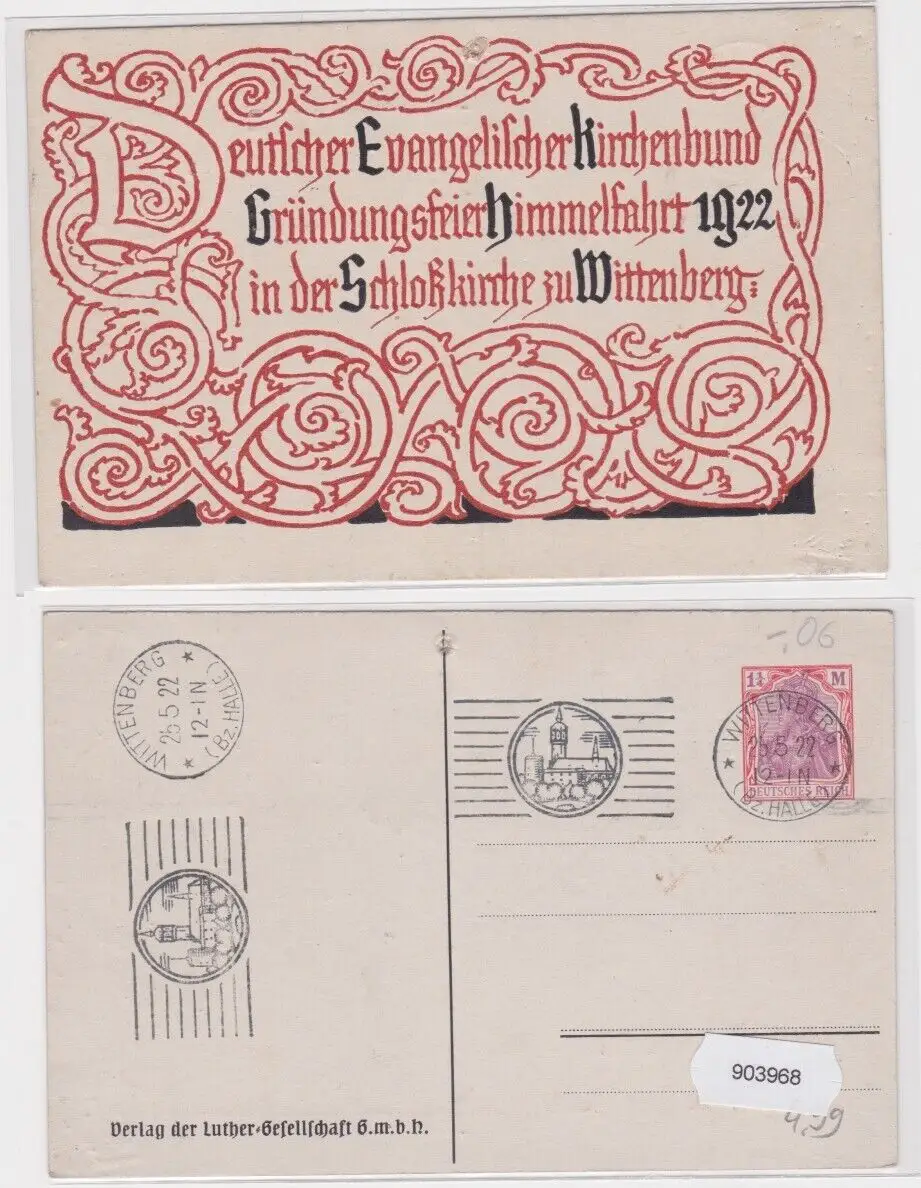 Deutscher Evangelischer Kirchenbund
Gründungsfeier Himmelfahrt 1922
in der Schloßkirche zu Wittenberg:
-,06
WITTENBERG
25 5 22
12-1N
(Bz. HALLE)
1¼ M
WITTENBERG
25 5 22
12-1N
(Bz. HALLE)
DEUTSCHES REICH
903968
4,99
Verlag der Luther-Gesellschaft G.m.b.H.